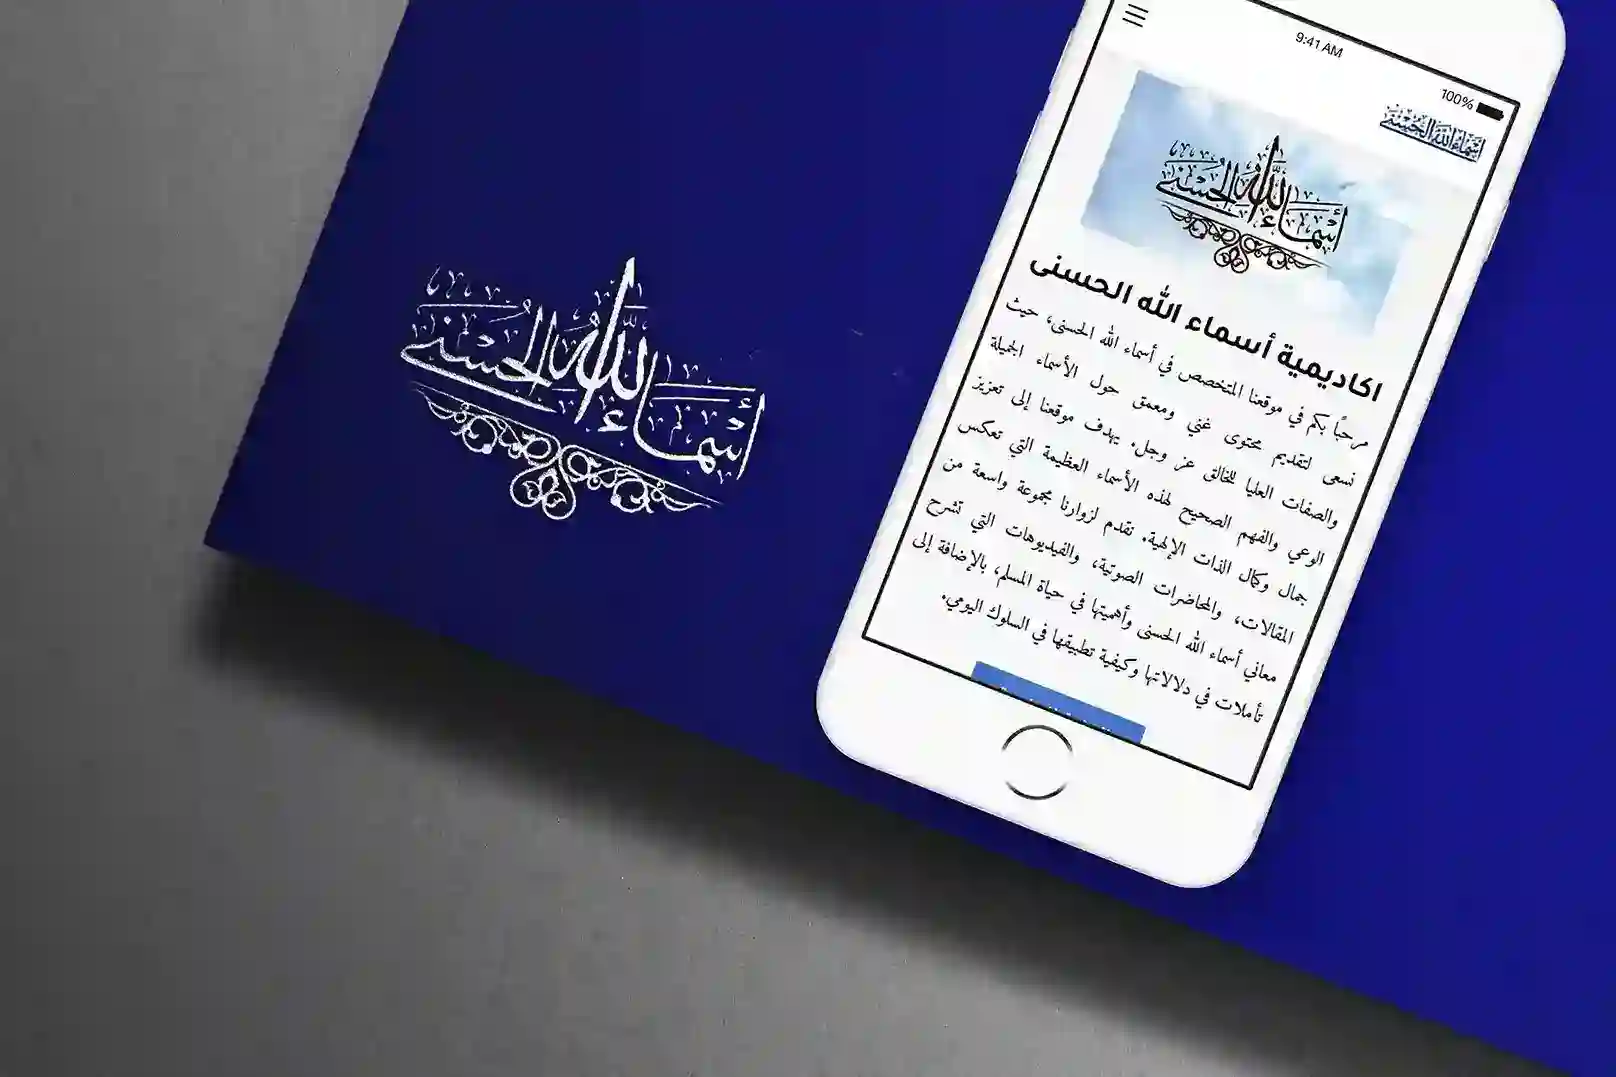 أسماء الله الحسنى
9:41 AM
100%
أسماء الله الحسنى
أسماء الله الحسنى
اكاديمية أسماء الله الحسنى
مرحبًا بكم في موقعنا المتخصص في أسماء الله الحسنى، حيث
نسعى لتقديم محتوى غني ومعمق حول الأسماء الجميلة
والصفات العليا للخالق عز وجل. يهدف موقعنا إلى تعزيز
الوعي والفهم الصحيح لهذه الأسماء العظيمة التي تعكس
جمال وكمال الذات الإلهية. نقدم لزوارنا مجموعة واسعة من
المقالات، والمحاضرات الصوتية، والفيديوهات التي تشرح
معاني أسماء الله الحسنى وأهميتها في حياة المسلم، بالإضافة إلى
تأملات في دلالاتها وكيفية تطبيقها في السلوك اليومي.